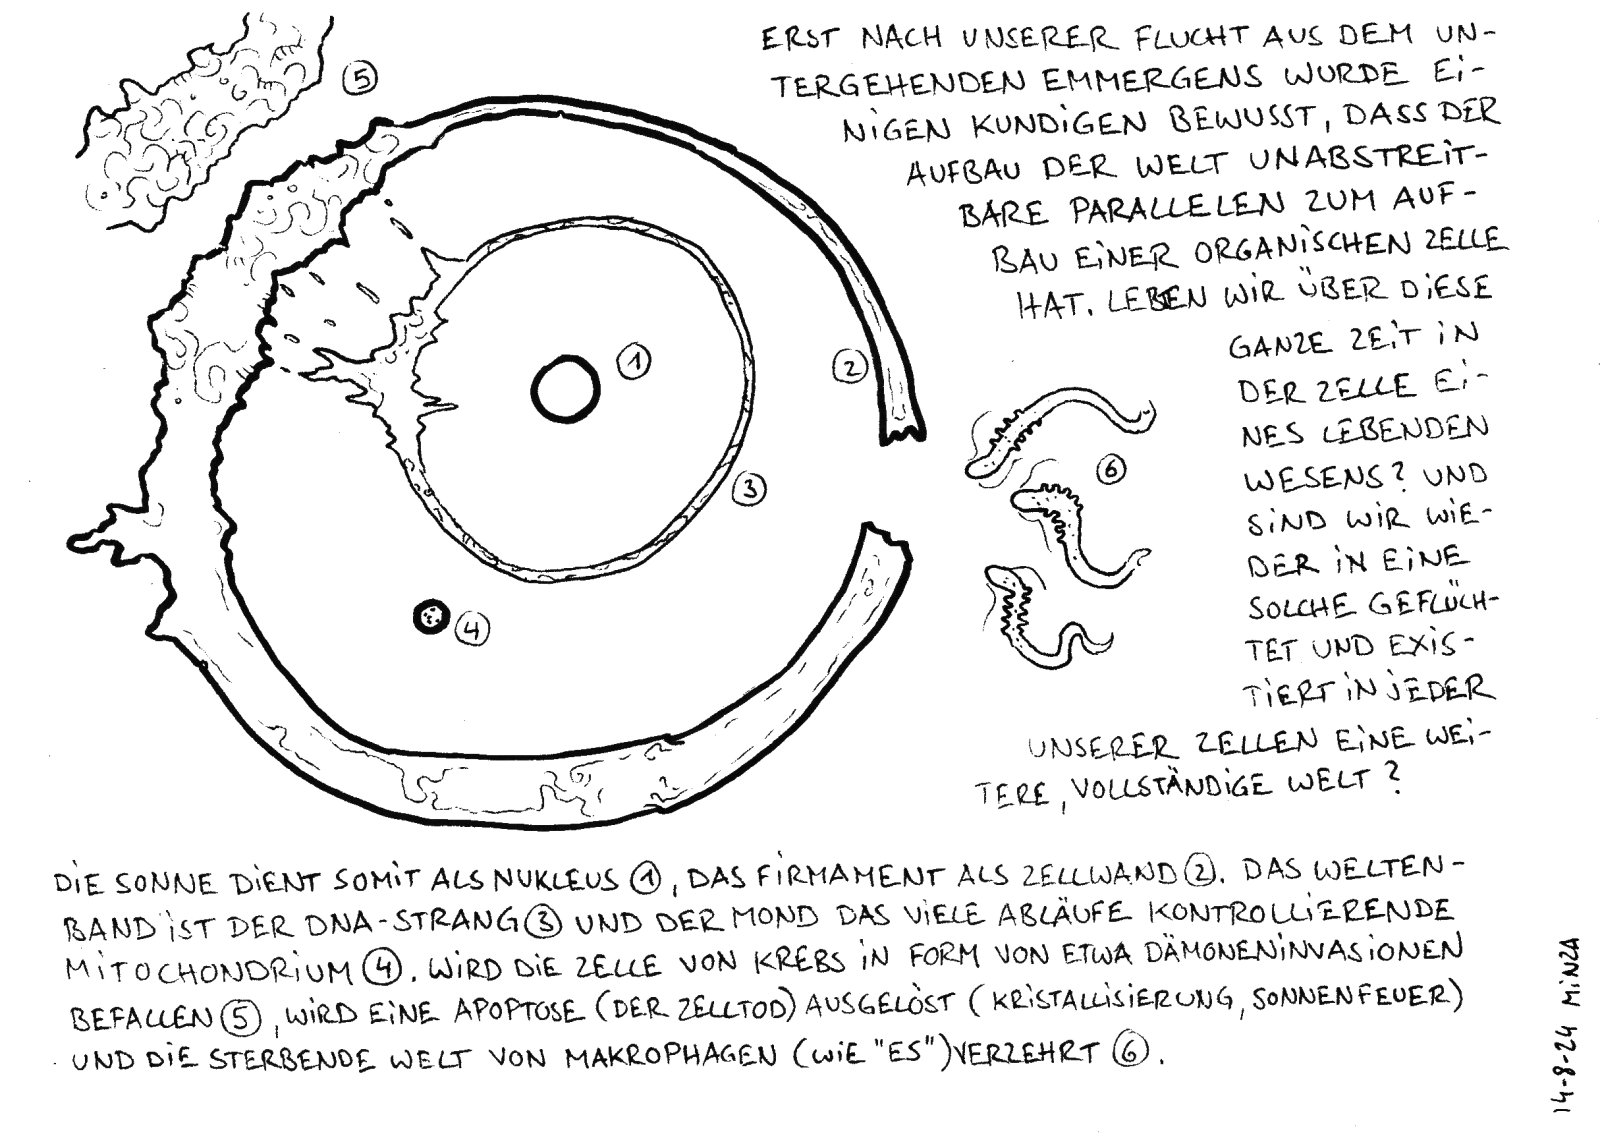 ERST NACH UNSERER FLUCHT AUS DEM UN-
TERGEHENDEN EMMERGENS WURDE Ei-
NiGEN KUNDiGEN BEWUSST, DASS DER
AUFBAU DER WELT UNABSTREiT-
BARE PARALLELEN ZUM AUF-
BAU EiNER ORGANiSCHEN ZELLE
HAT. LEBEN WiR ÜBER DiESE
GANZE ZEiT iN
DER ZELLE Ei-
NES LEBENDEN
WESENS? UND
SiND WiR WiE-
DER iN EiNE
SOLCHE GEFLÜCH-
TET UND EXiS-
TiERT iN JEDER
UNSERER ZELLEN EiNE WEi-
TERE, VOLLSTÄNDiGE WELT?
5
1
2
3
4
6
DiE SONNE DiENT SOMiT ALS NUKLEUS 1, DAS FiRMAMENT ALS ZELLWAND 2. DAS WELTEN-
BAND iST DER DNA-STRANG 3 UND DER MOND DAS ViELE ABLÄUFE KONTROLLiERENDE
MiTOCHONDRiUM 4. WiRD DiE ZELLE VON KREBS iN FORM VON ETWA DÄMONENiNVASiONEN
BEFALLEN 5, WiRD EiNE APOPTOSE (DER ZELLTOD) AUSGELÖST (KRiSTALLiSiERUNG, SONNENFEUER)
UND DiE STERBENDE WELT VON MAKROPHAGEN (WiE "ES") VERZEHRT 6.
14-8-24 MiNZA